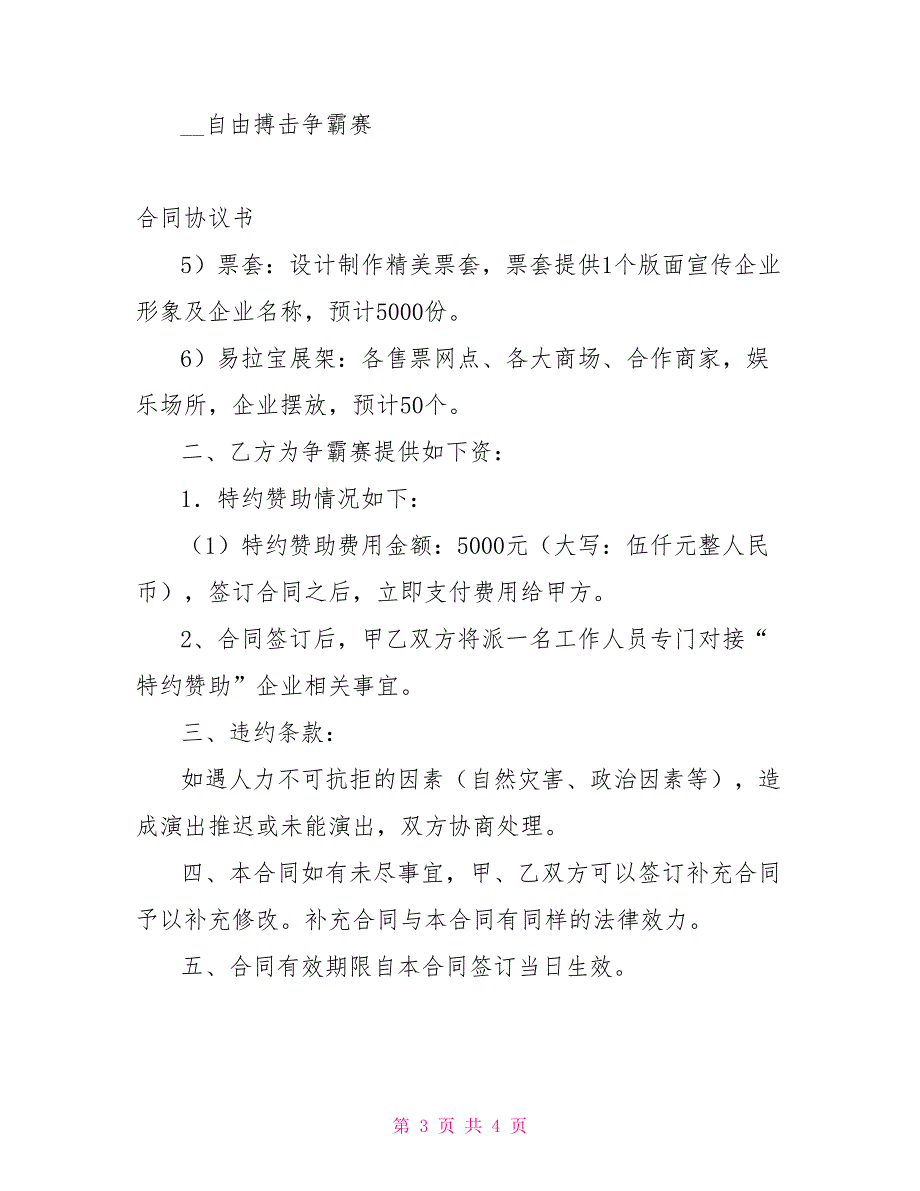 __自由搏击争霸赛
合同协议书
5）票套：设计制作精美票套，票套提供1个版面宣传企业
形象及企业名称，预计5000份。
6）易拉宝展架：各售票网点、各大商场、合作商家，娱
乐场所，企业摆放，预计50个。
二、乙方为争霸赛提供如下资：
1．特约赞助情况如下：
（1）特约赞助费用金额：5000元（大写：伍仟元整人民
币），签订合同之后，立即支付费用给甲方。
2、合同签订后，甲乙双方将派一名工作人员专门对接“
特约赞助”企业相关事宜。
三、违约条款：
如遇人力不可抗拒的因素（自然灾害、政治因素等），造
成演出推迟或未能演出，双方协商处理。
四、本合同如有未尽事宜，甲、乙双方可以签订补充合同
予以补充修改。补充合同与本合同有同样的法律效力。
五、合同有效期限自本合同签订当日生效。
第 3 页 共 4 页